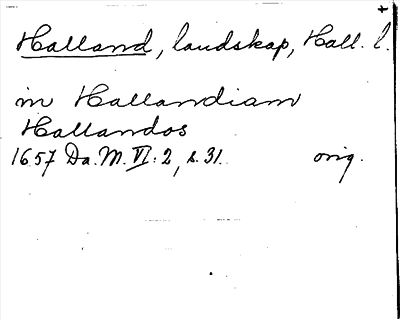 Halland, landskap, Hall. l.
in Hallandiam
Hallandos
1657 Da. M. VI: 2, s. 31. orig.